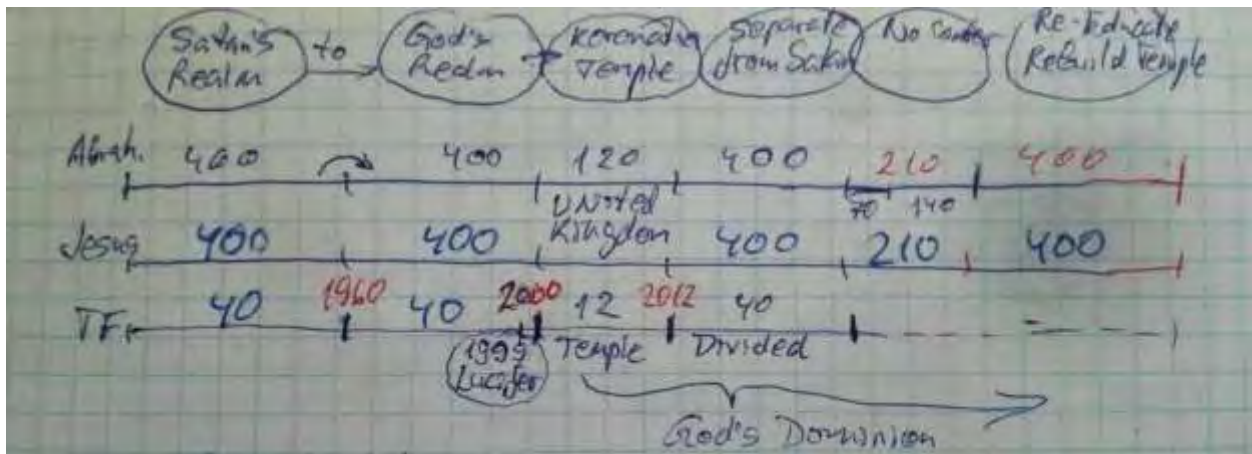 Satan's Realm to God's Realm Temple Separate from Satan No Re- Rebuild Temple
Abrah. 400 400 120 400 210 400
United Kingdom 70 140
Jesus 400 400 400 210 400
TF. 40 1960 40 2000 12 2012 40
1999 Lucifer Temple Divided
God's Dominion